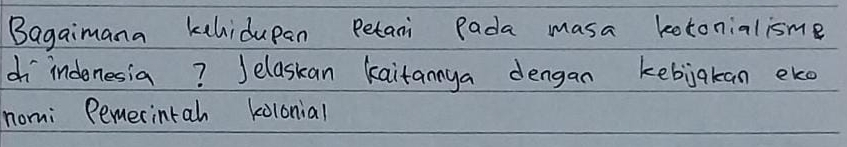 Bagaimana kehidupan Petani Pada masa kotonialisme
di indonesia ? Jelaskan kaitannya dengan kebijakan eko
nomi Pemerintah kolonial